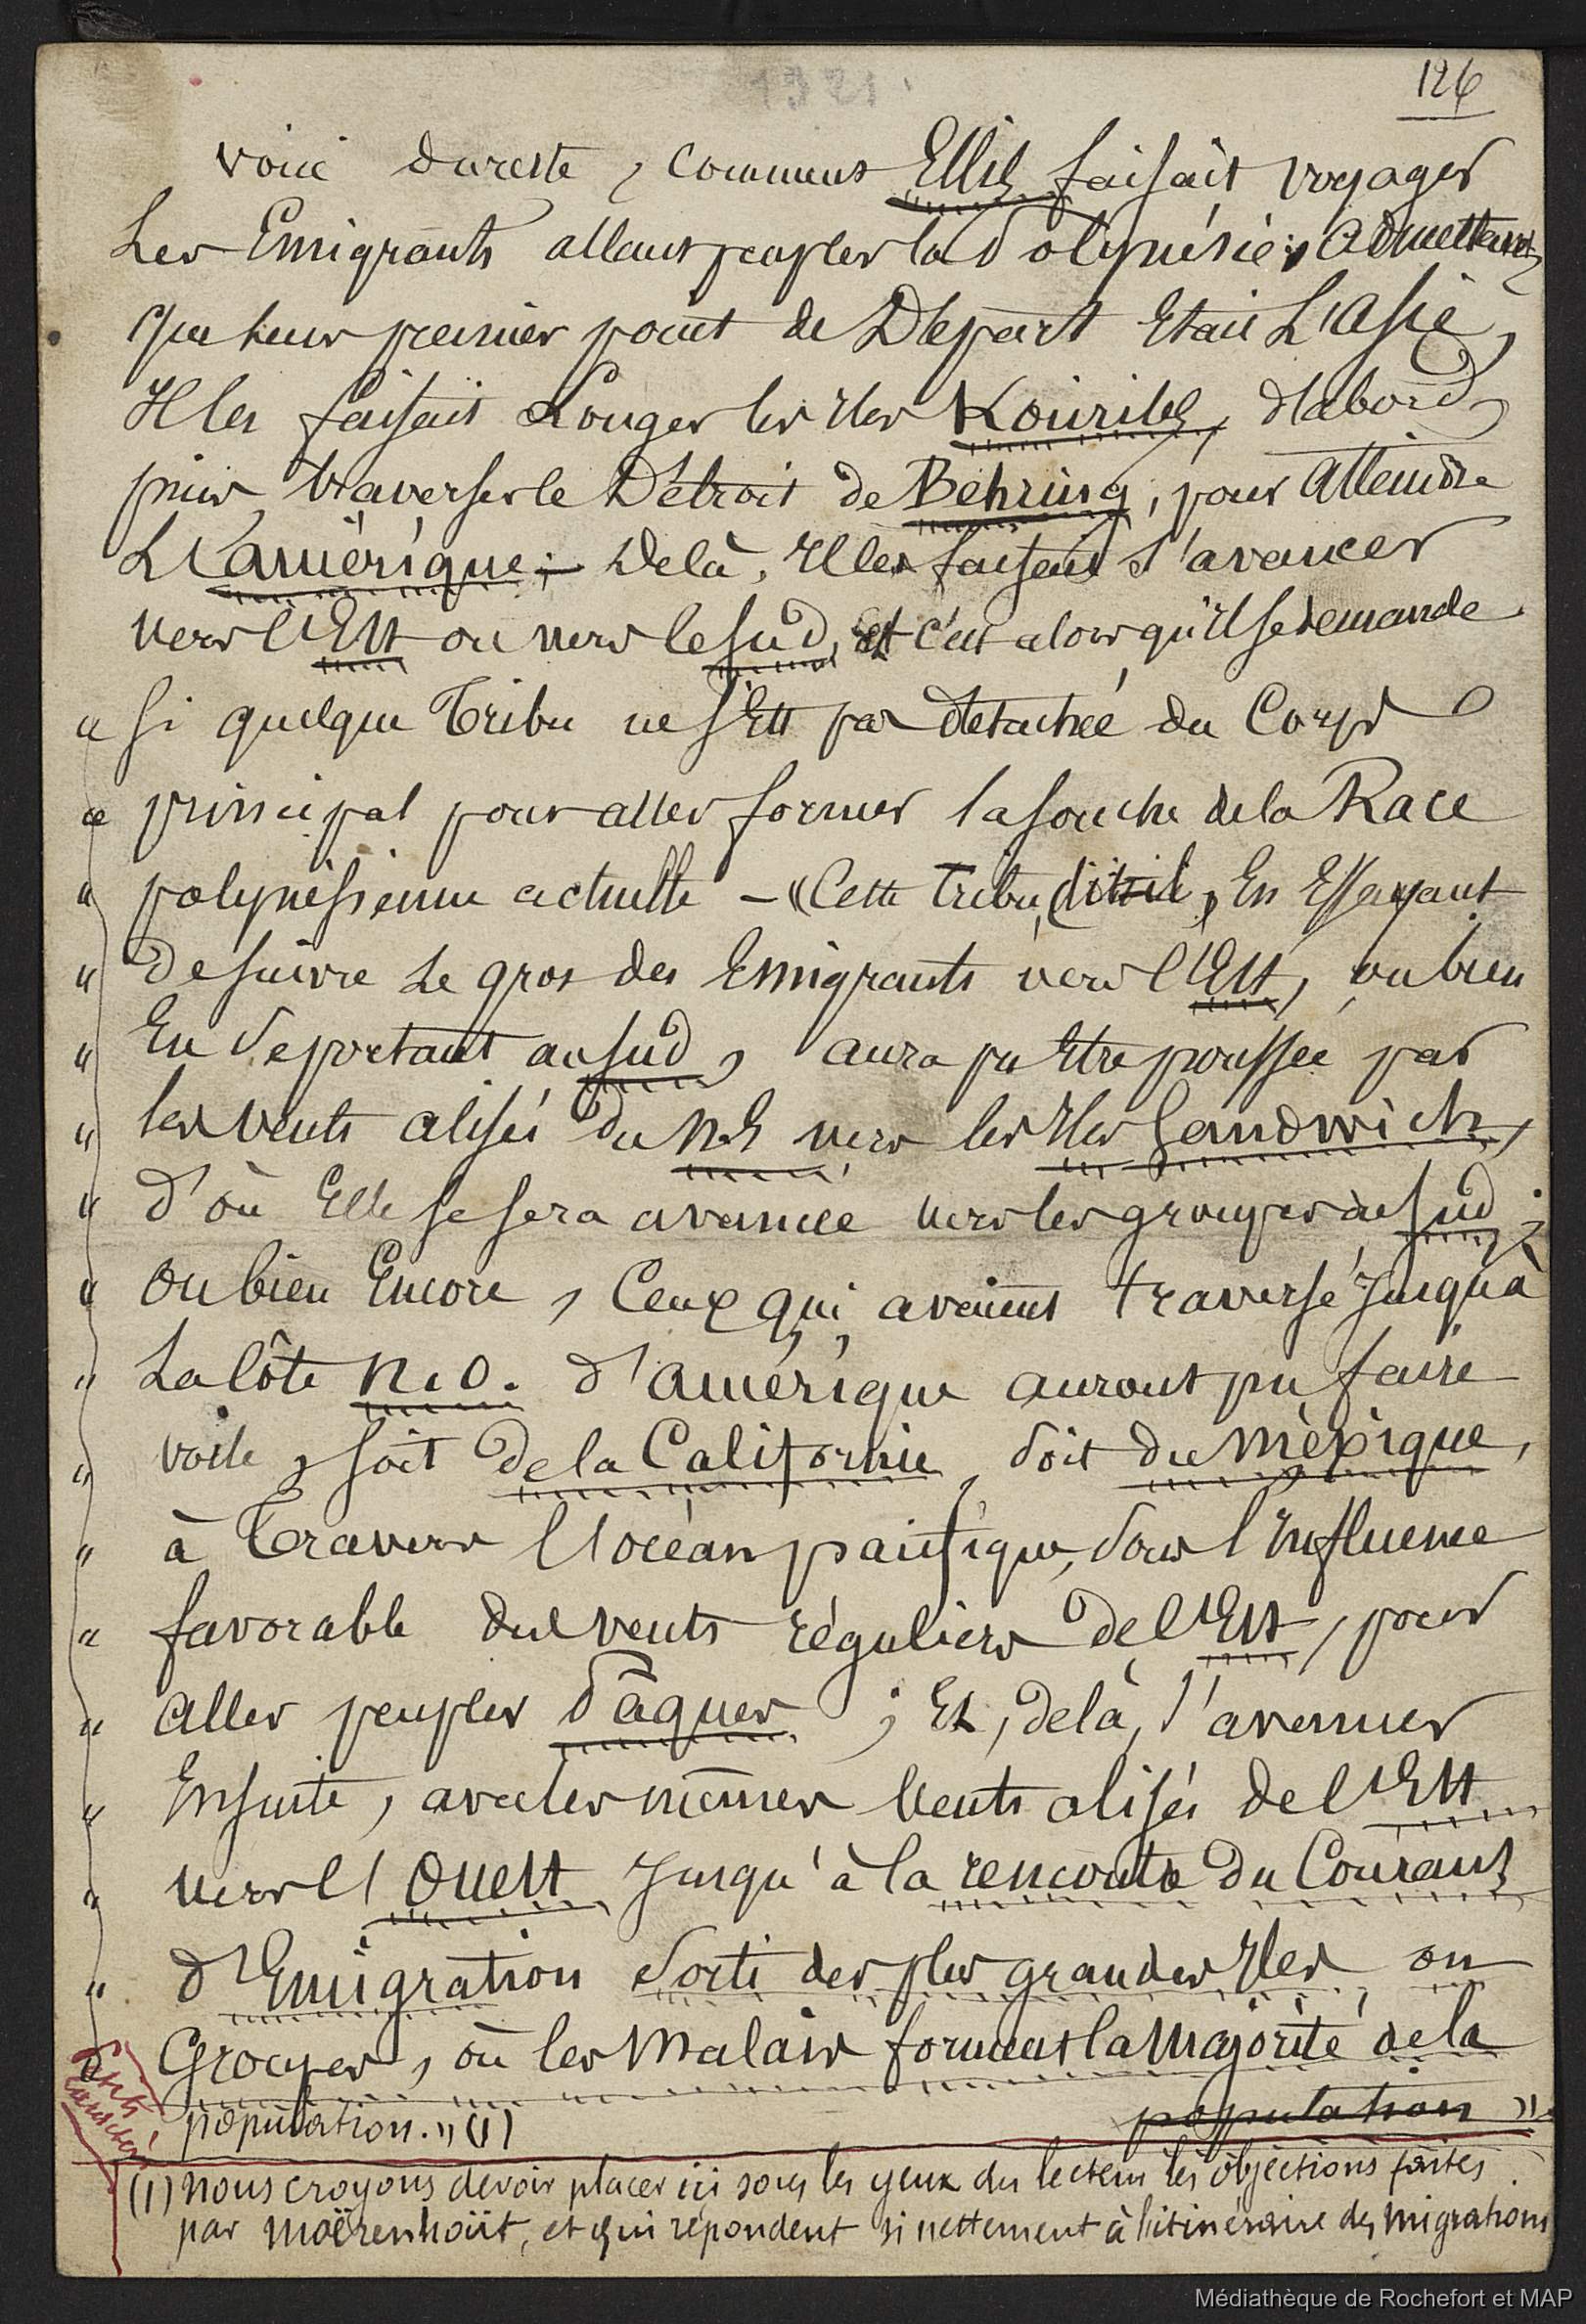 126
voici dureste, comment Ellis faisait voyager
Les Emigrants allant peupler la Polynésie; admettant
que leur premier point de Départ Etait L'asie,
Il les faisait Longer les Iles Kouriles, d'abord,
puis, traverser le Détroit de Behring, pour atteindre
L'amérique; Delà, Il les faisait s'avancer
vers l'Est ou vers le sud, et c'est alors qu'il se demande
" si quelque Tribu ne s'Est pas détachée du Corps
" principal pour aller former la souche de la Race
" polynésienne actuelle – « Cette tribu, dit-il, En Essayant
" de suivre Le gros des Emigrants vers l'Est, ou bien
" En se portant au sud, aura pu Etre poussée par
" les vents alisés du N.E vers les Iles Sandwich,
" d'où Elle se sera avancée vers les groupes du sud;
" ou bien Encore, Ceux qui avaient traversé jusqu'à
" La Côte N.O. d'amérique auront pu faire
" voile, soit de la Californie, soit du Méxique,
" à Travers l'océan pacifique, sous l'Influence
" favorable des vents réguliers de l'Est, pour
" aller peupler Pâques; Et, delà, s'avancer
" Ensuite, avec les mêmes Vents alisés de l'Est
" vers l'Ouest Jusqu'à la rencontre du Courant
" d'Emigration sorti des plus grandes Iles ou
" Groupes, où les Malais forment la majorité de la
population »
population. » (1)
(1) nous croyons devoir placer ici sous les yeux du lecteur les objections faites
par Moërenhoüt, et qui répondent si nettement à l'itinéraire des migrations
Médiathèque de Rochefort et MAP